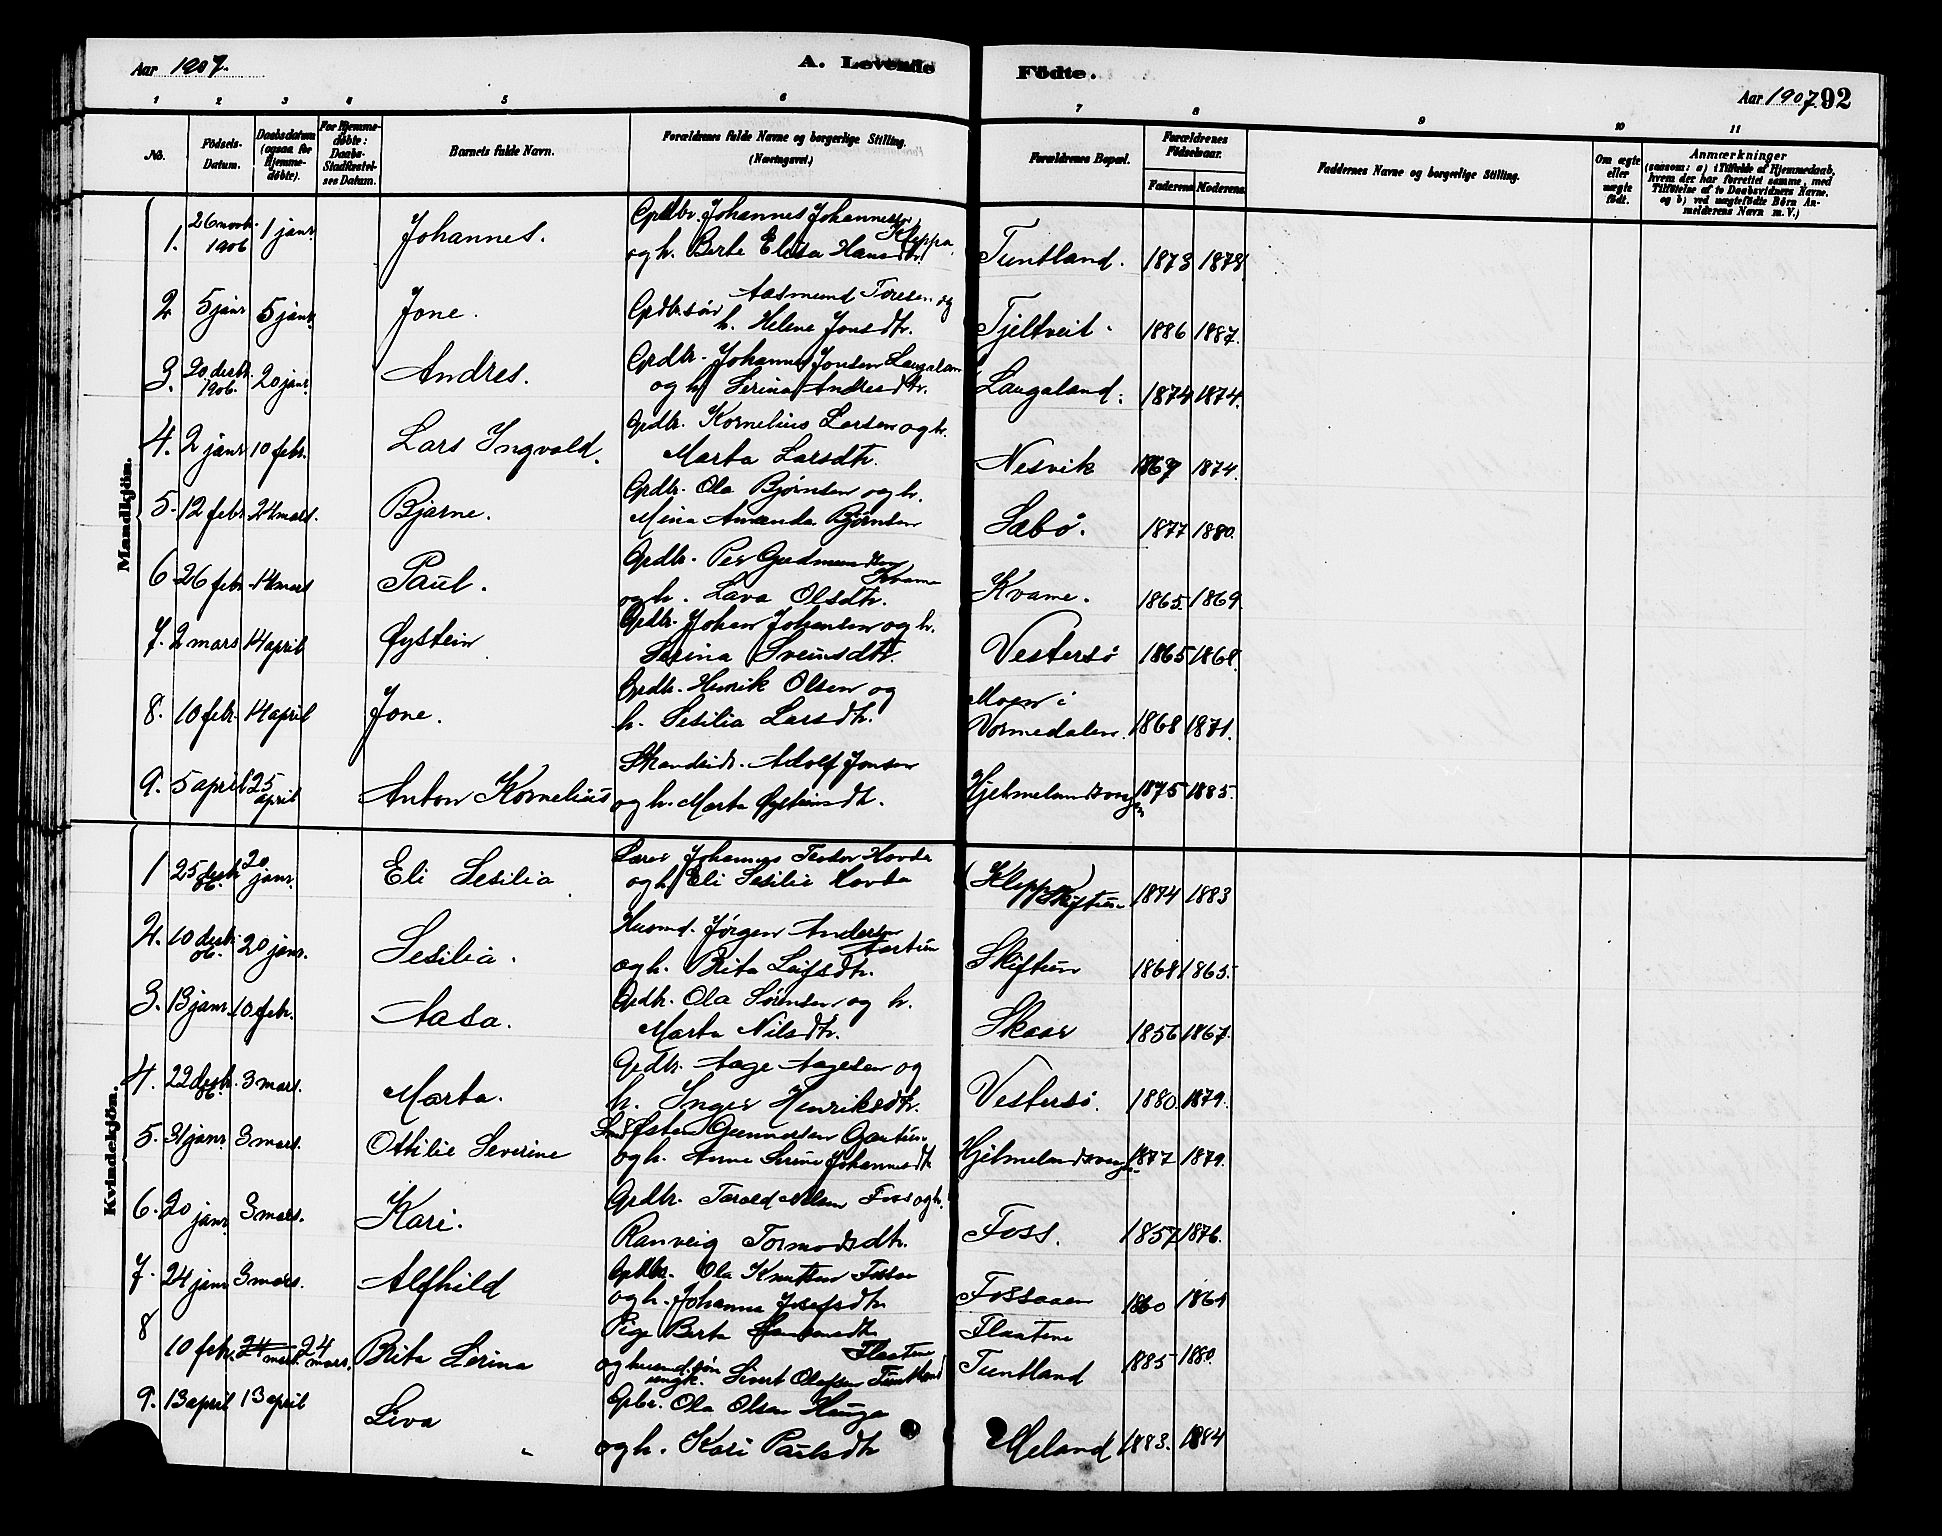 Aar 1907.
A. Levende
Födte.
Aar 1907.
92
1 2 3 4 5 6 7 8 9 10 11
No.
Födsels-Datum.
Daabsdatum (ogsaa for Hjemmedøbte).
For Hjemmedøbte: Daabs-Stadfæstelses Datum.
Barnets fulde Navn.
Forældrenes fulde Navne og borgerlige Stilling. (Næringsvei.)
Forældrenes Bopæl.
Forældrenes Fødselsaar.
Faderens Moderens
Faddernes Navne og borgerlige Stilling.
Om ægte eller uægte født.
Anmærkninger (saasom: a) i Tilfælde af Hjemmedaab, hvem der har forrettet samme, med Tilføielse af to Daabsvidners Navne, og b) ved uægtefödte Börn Anmelderens Navn m. V.)
Mandkjön.
1. 26 novb. 1906 1 janr. Johannes. Grdbr. Johannes Johannessen Kleppa
og h. Berte Elisa Hansdtr. Tuntland. 1873 1878
2 5 janr 5 janr. Jone. Grdbr.søn Aasmund Toresen og
h. Helene Jonsdtr. Tjeltveit. 1886 1887.
3. 20 decbr. 1906. 20 janr. Andres. Grdbr. Johannes Jonsen Laugaland
og h. Serina Andresdtr. Laugaland. 1874 1874.
4. 2 janr 10 febr. Lars Ingvald. Grdbr. Kornelius Larsen og h.
Marta Larsdtr. Nesvik 1867 1874.
5. 12 febr 24 mars. Bjarne. Grdbr. Ola Bjørnsen og h.
Mina Amanda Bjørnsen Sæbø. 1877 1880.
6 26 febr. 14 mars Paul. Grdbr. Per Gudmundsen Kvame
og h. Lava Olsdtr. Kvame. 1865. 1869.
7. 2 mars 14 april Øystein Grdbr. Johan Johansen og h.
Serina Sveinsdtr. Vestersø 1865 1868.
8. 10 febr. 14 april Jone. Grdbr. Henrik Olsen og
h. Sesilia Larsdtr. Moen i Vormedalen. 1868 1871.
9. 5 april 25 april Anton Kornelius Strandsidr. Adolf Jonsen
og h. Marta Øysteinsdtr. Hjelmelandsvaagen 1875 1885.
Kvindekjön.
1 25 decbr. 06. 20 janr. Eli Sesilia Lærer Johannes Teodor Hovda
og h. Eli Sesilie Hovda (Kleppa) Skiftun 1874 1883
2. 10 decbr. 06. 20 janr. Sesilia. Husmd. Jørgen Andersen Aartun
og h. Brita Leifsdtr. Skiftun 1868 1865.
3. 13 janr. 10 febr. Aasa. Grdbr. Ola Sørensen og h.
Marta Nilsdtr. Skaar 1856 1867.
4. 22 decbr. 06. 3 mars. Marta. Grdbr. Aage Aagesen og
h. Inger Henriksdtr. Vestersø. 1880. 1879.
5. 31 janr. 3 mars. Othilie Severine Østen Gunnarsen Gartun
og h. Anne Serine Johannesdtr. Hjelmelandsvaagen 1877 1879.
6. 20 janr. 3 mars. Kari. Grdbr. Tarald Nilsen Foss og h.
Ranveig Tormodsdtr. Foss. 1857 1876.
7. 24 janr 3 mars. Alfhild Grdbr. Ola Knutsen Fossaa
og h. Johanna Josefsdtr Fossaaen 1860 1861
8 10 febr. 24 mars. 24 mars. Brita Serina Pige Berta
Flaaten Flaatene
og husmd.søn ungk. Sivert Olafsen Tuntland Tuntland 1885 1880.
9. 13 april 13 april Liva Grdbr. Ola Olsen Hauge
og h. Kari Paulsdtr Meland 1883. 1884